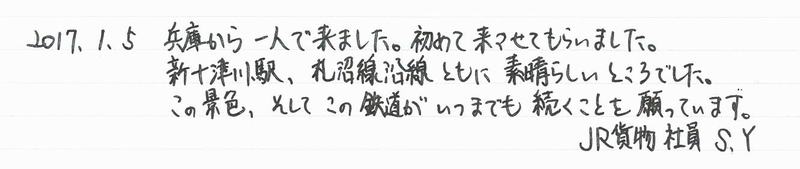 2017.1.5 兵庫から一人で来ました。初めて来させてもらいました。
新十津川駅、札沼線沿線ともに素晴らしいところでした。
この景色、そしてこの鉄道がいつまでも続くことを願っています。
JR貨物社員 S.Y